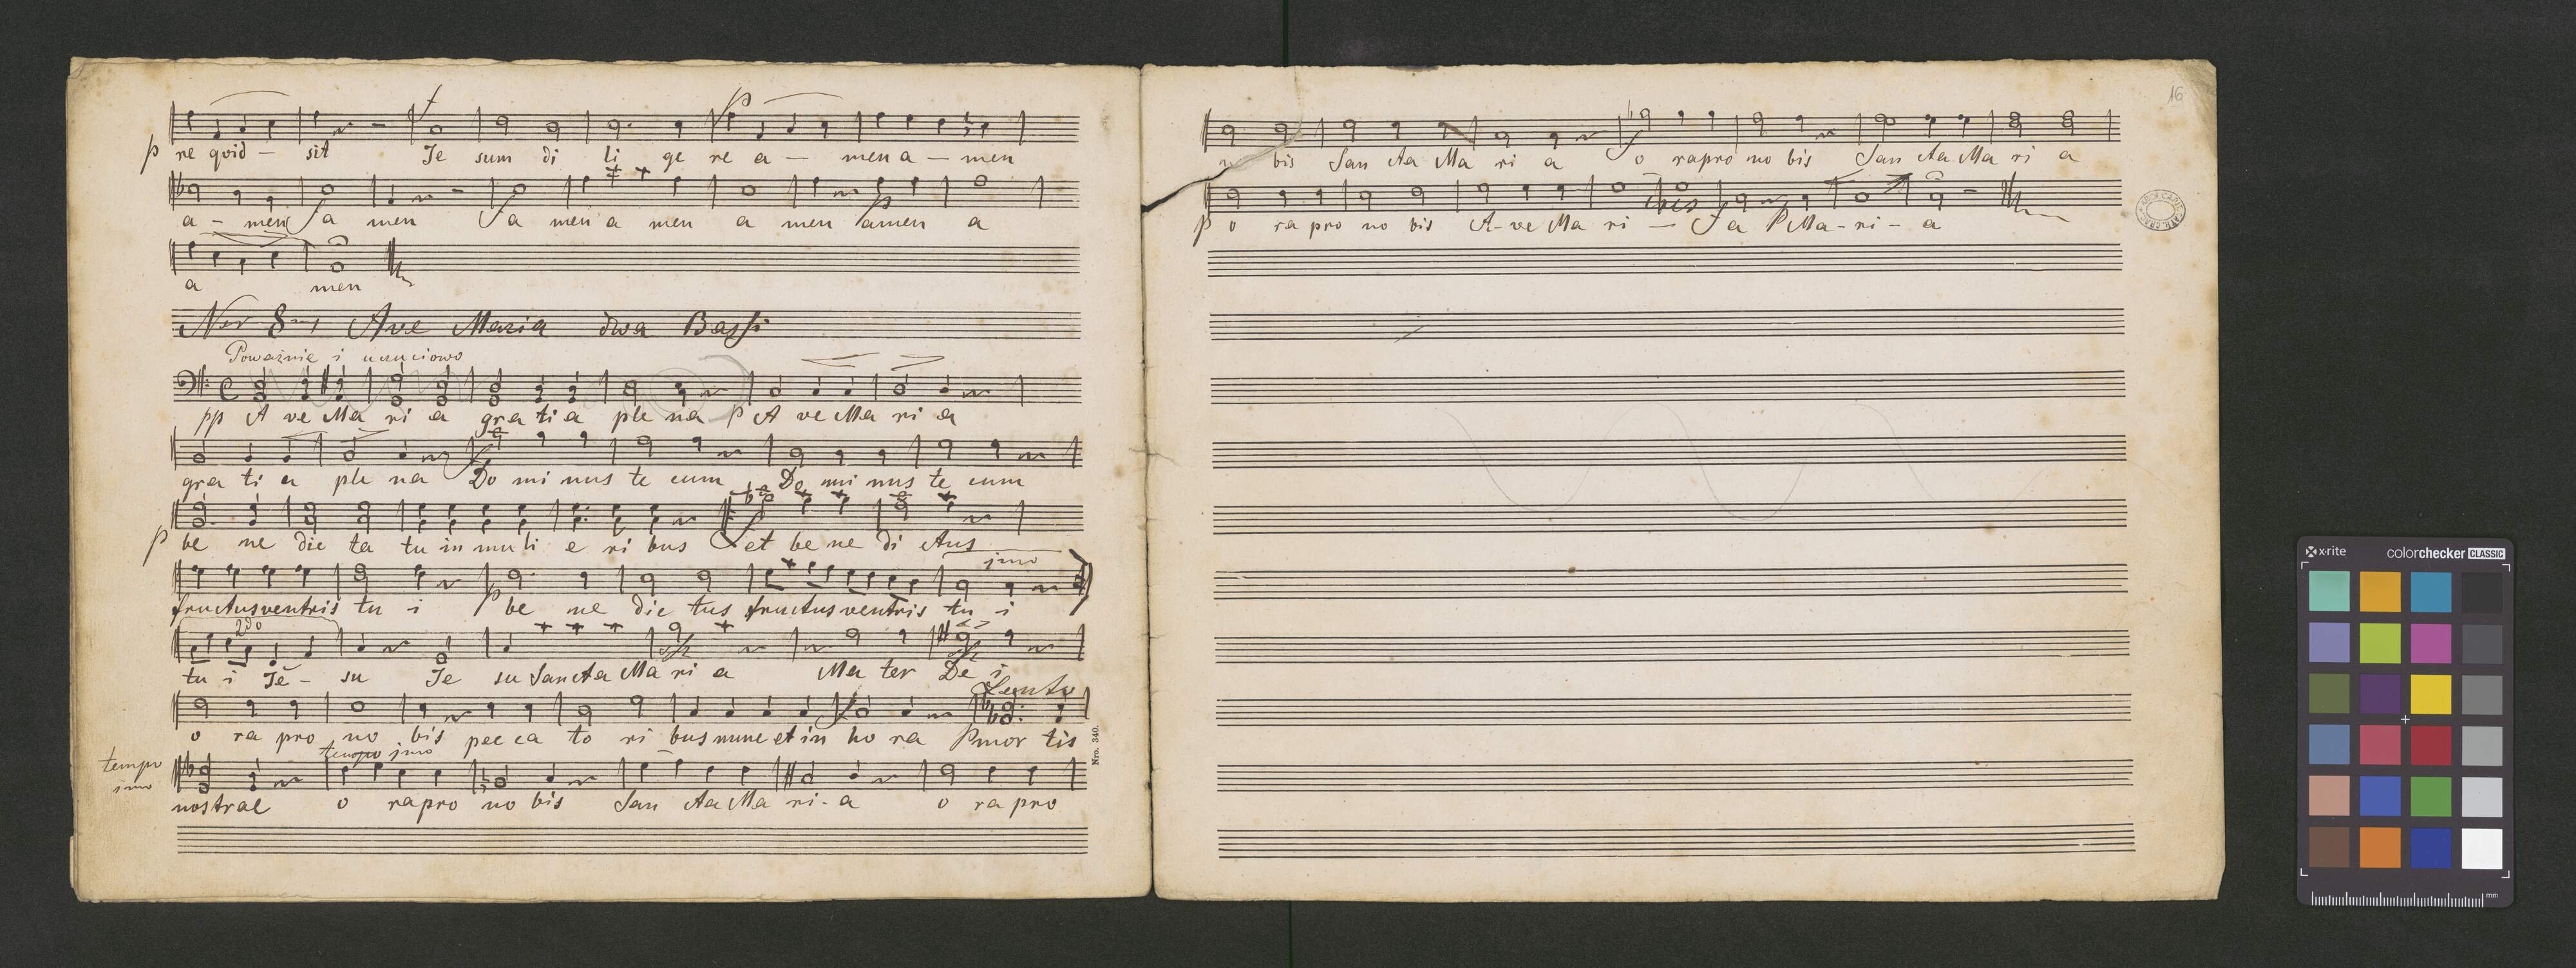 f
p
p re quid - sit Je sum di li ge re a - men a - men
a - men f a men f a men a men a men amen a
a men
Nro 8vus Ave Maria dwa Bassi
Poważnie i uczuciowo
pp A ve Ma ri a gra ti a ple na p A ve Ma ri a
gra ti a ple na f Do mi nus te cum Do mi nus te cum
p be ne dic ta tu in mu li e ri bus f et be ne di ctus
jmo
fructus ventris tu i p be ne dic tus fructus ventris tu i
2do
tu i Je - su Je su Sancta Ma ri a Ma ter De i
Lento
o ra pro no bis pec ca to ri bus nunc et in ho ra p mor tis
tempo jmo
tempo jmo
nostrae o ra pro no bis San cta Ma ri - a o ra pro
Nro. 340.
16
no bis San cta Ma ri a f o ra pro no bis San cta Ma ri a
bis
p o ra pro no bis A - ve Ma ri - f a p Ma - ri - a
x-rite colorchecker CLASSIC
mm